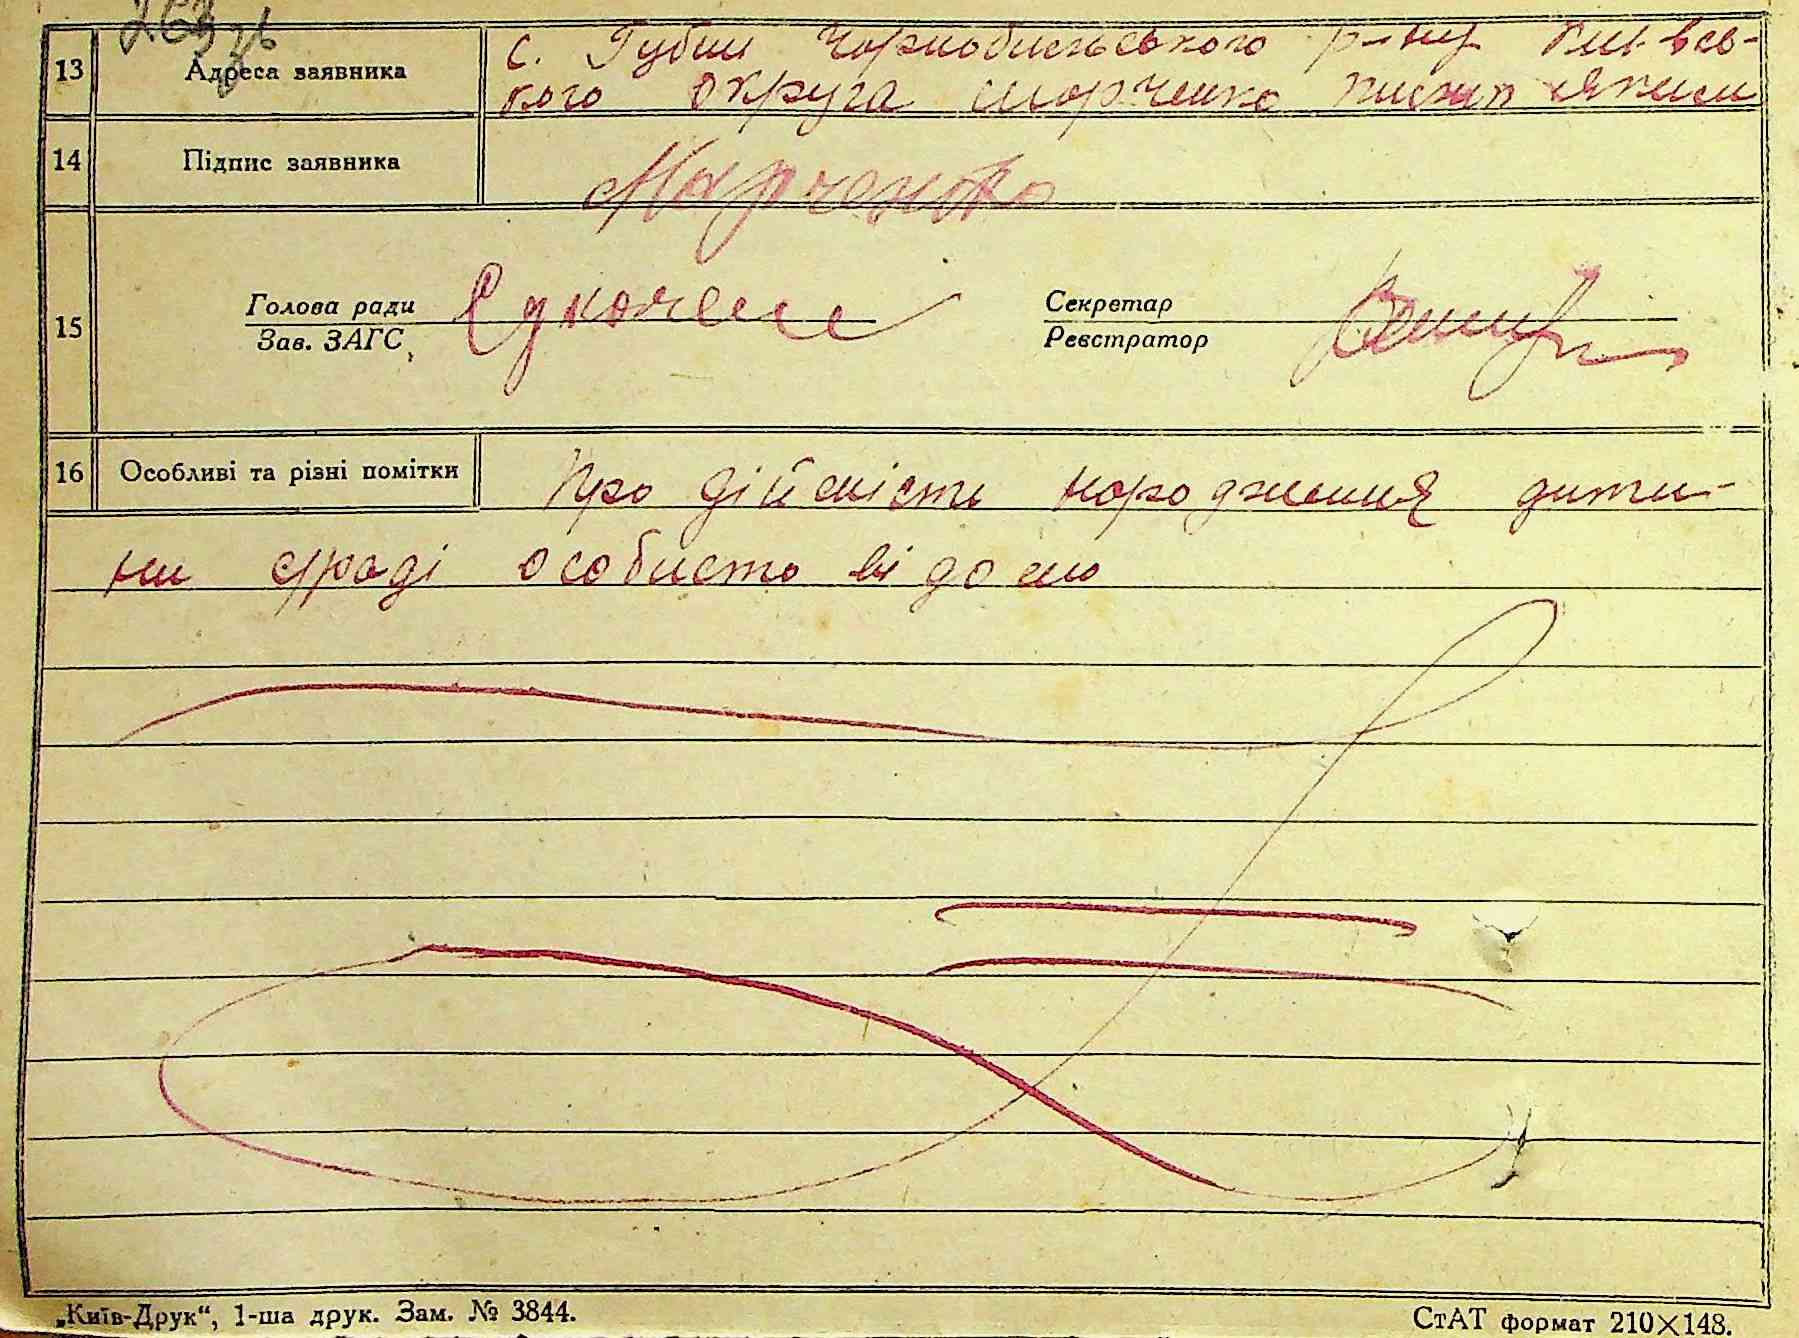 263
13 Адреса заявника с. Губин Чорнобильського р-ну Київсь-
кого округа Марченко
14 Підпис заявника Марченко
15 Голова ради
Зав. ЗАГС
Секретар
Реєстратор
16 Особливі та різні помітки Про дійсність народження дити-
ни с/раді особисто відомо
„Київ-Друк“, 1-ша друк. Зам. № 3844.
СтАТ формат 210×148.